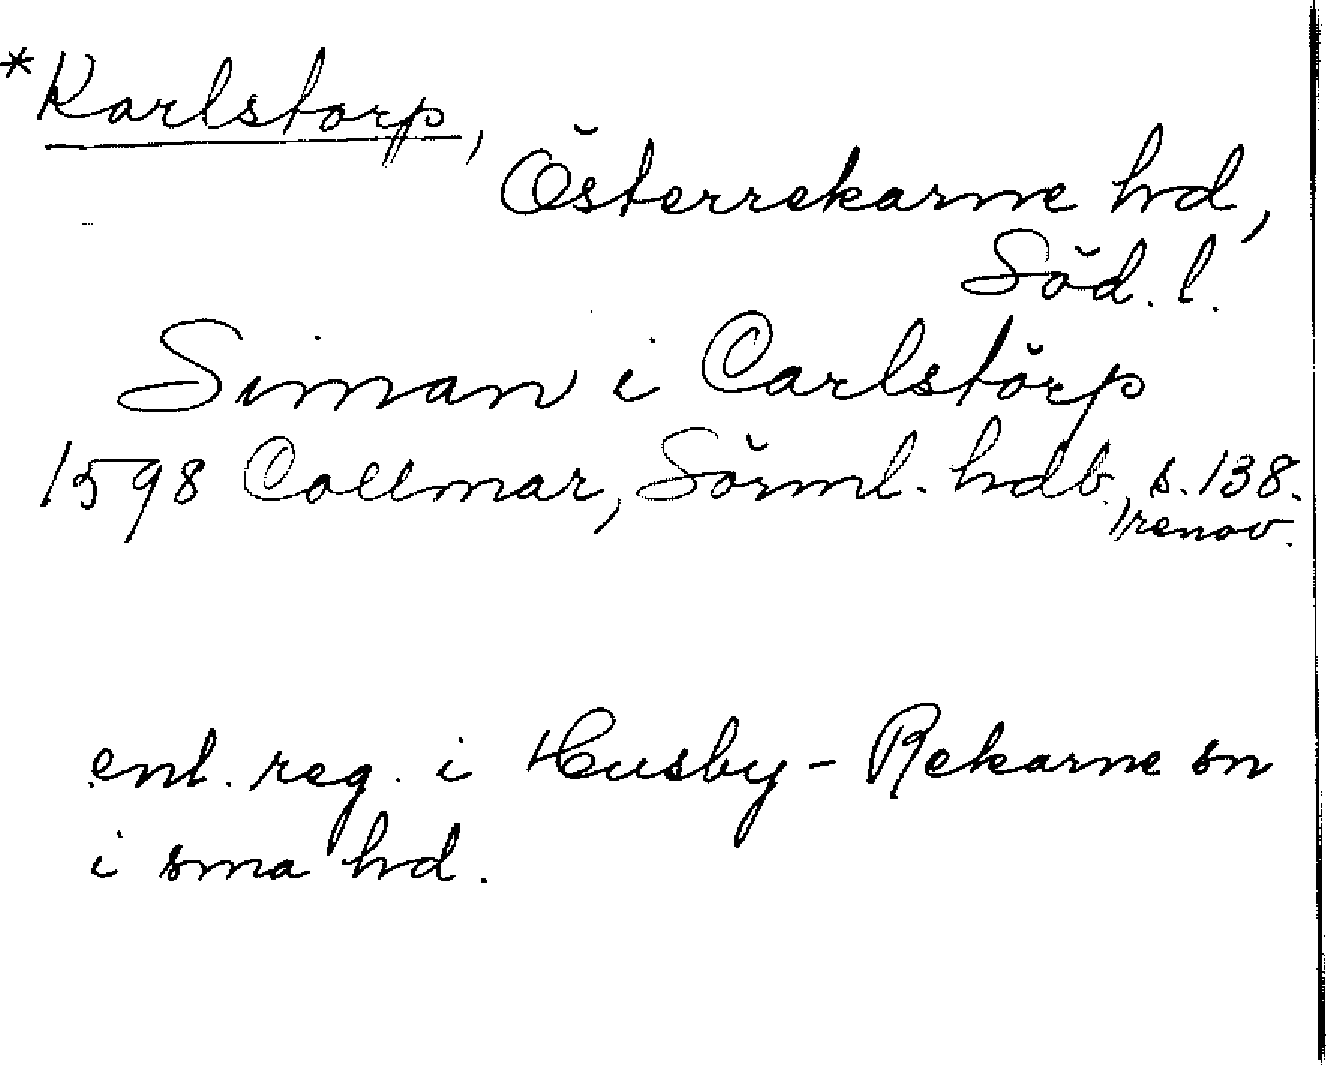 *Karlstorp,
Österrekarne hd,
Söd. l.
Siman i Carlstörp
1598 Collmar, Sörml. hdb, s. 138.
/renov.
enl. reg. i Husby-Rekarne sn
i sma hd.